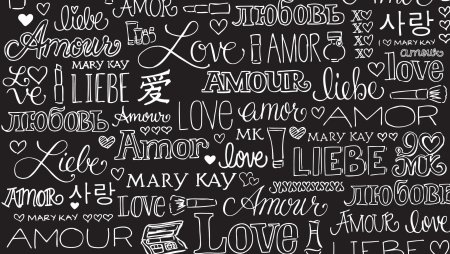 ЛЮБОВЬ
Amour
Love
AMOR
사랑
MARY KAY
amour
Love
MARY KAY
LIEBE
爱
AMOUR
liebe
love
ЛЮБОВЬ
Amour
LOVE
amor
AMOR
Liebe
Amor
MK
love
MARY KAY
LIEBE
MK
AMOR
사랑
MARY KAY
Amour
ЛЮБОВЬ
MARY KAY
love
AMOUR
love
AMOUR
Love
LIEBE